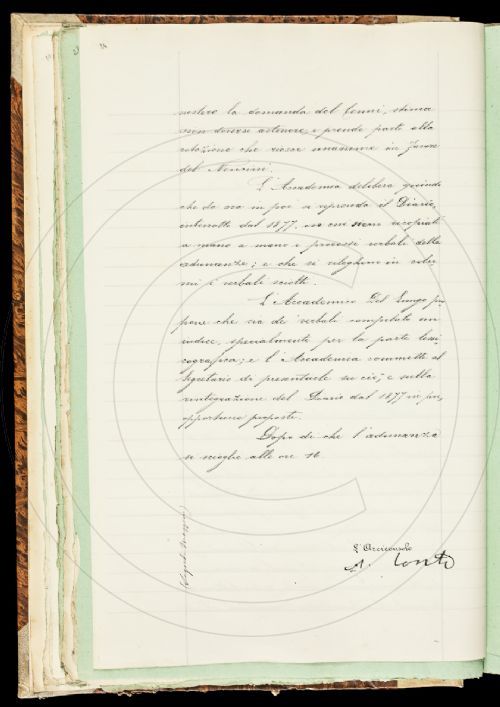 nostero la domanda del Fanni, stima
non doversi astenere, e prende parte alla
votazione che riesce unanime in favore
del Nencini.
L'Accademia delibera quindi
che da ora in poi si riprenda il Diario,
interrotto dal 1877, in cui siano ricopiati
a mano a mano i processi verbali delle
adunanze; e che si rileghino in volu
mi i verbali sciolti.
L'Accademico Del Lungo pro
pone che sia dei verbali compilato un
indice, specialmente per la parte lessi
cografica; e l'Accademia commette al
Segretario di presentarle su ciò, e sulla
reintegrazione del Diario dal 1877 in poi,
opportune proposte.
Dopo di che l'adunanza
si scioglie alle ore 16.
L'Arciconsolo
A. Conti